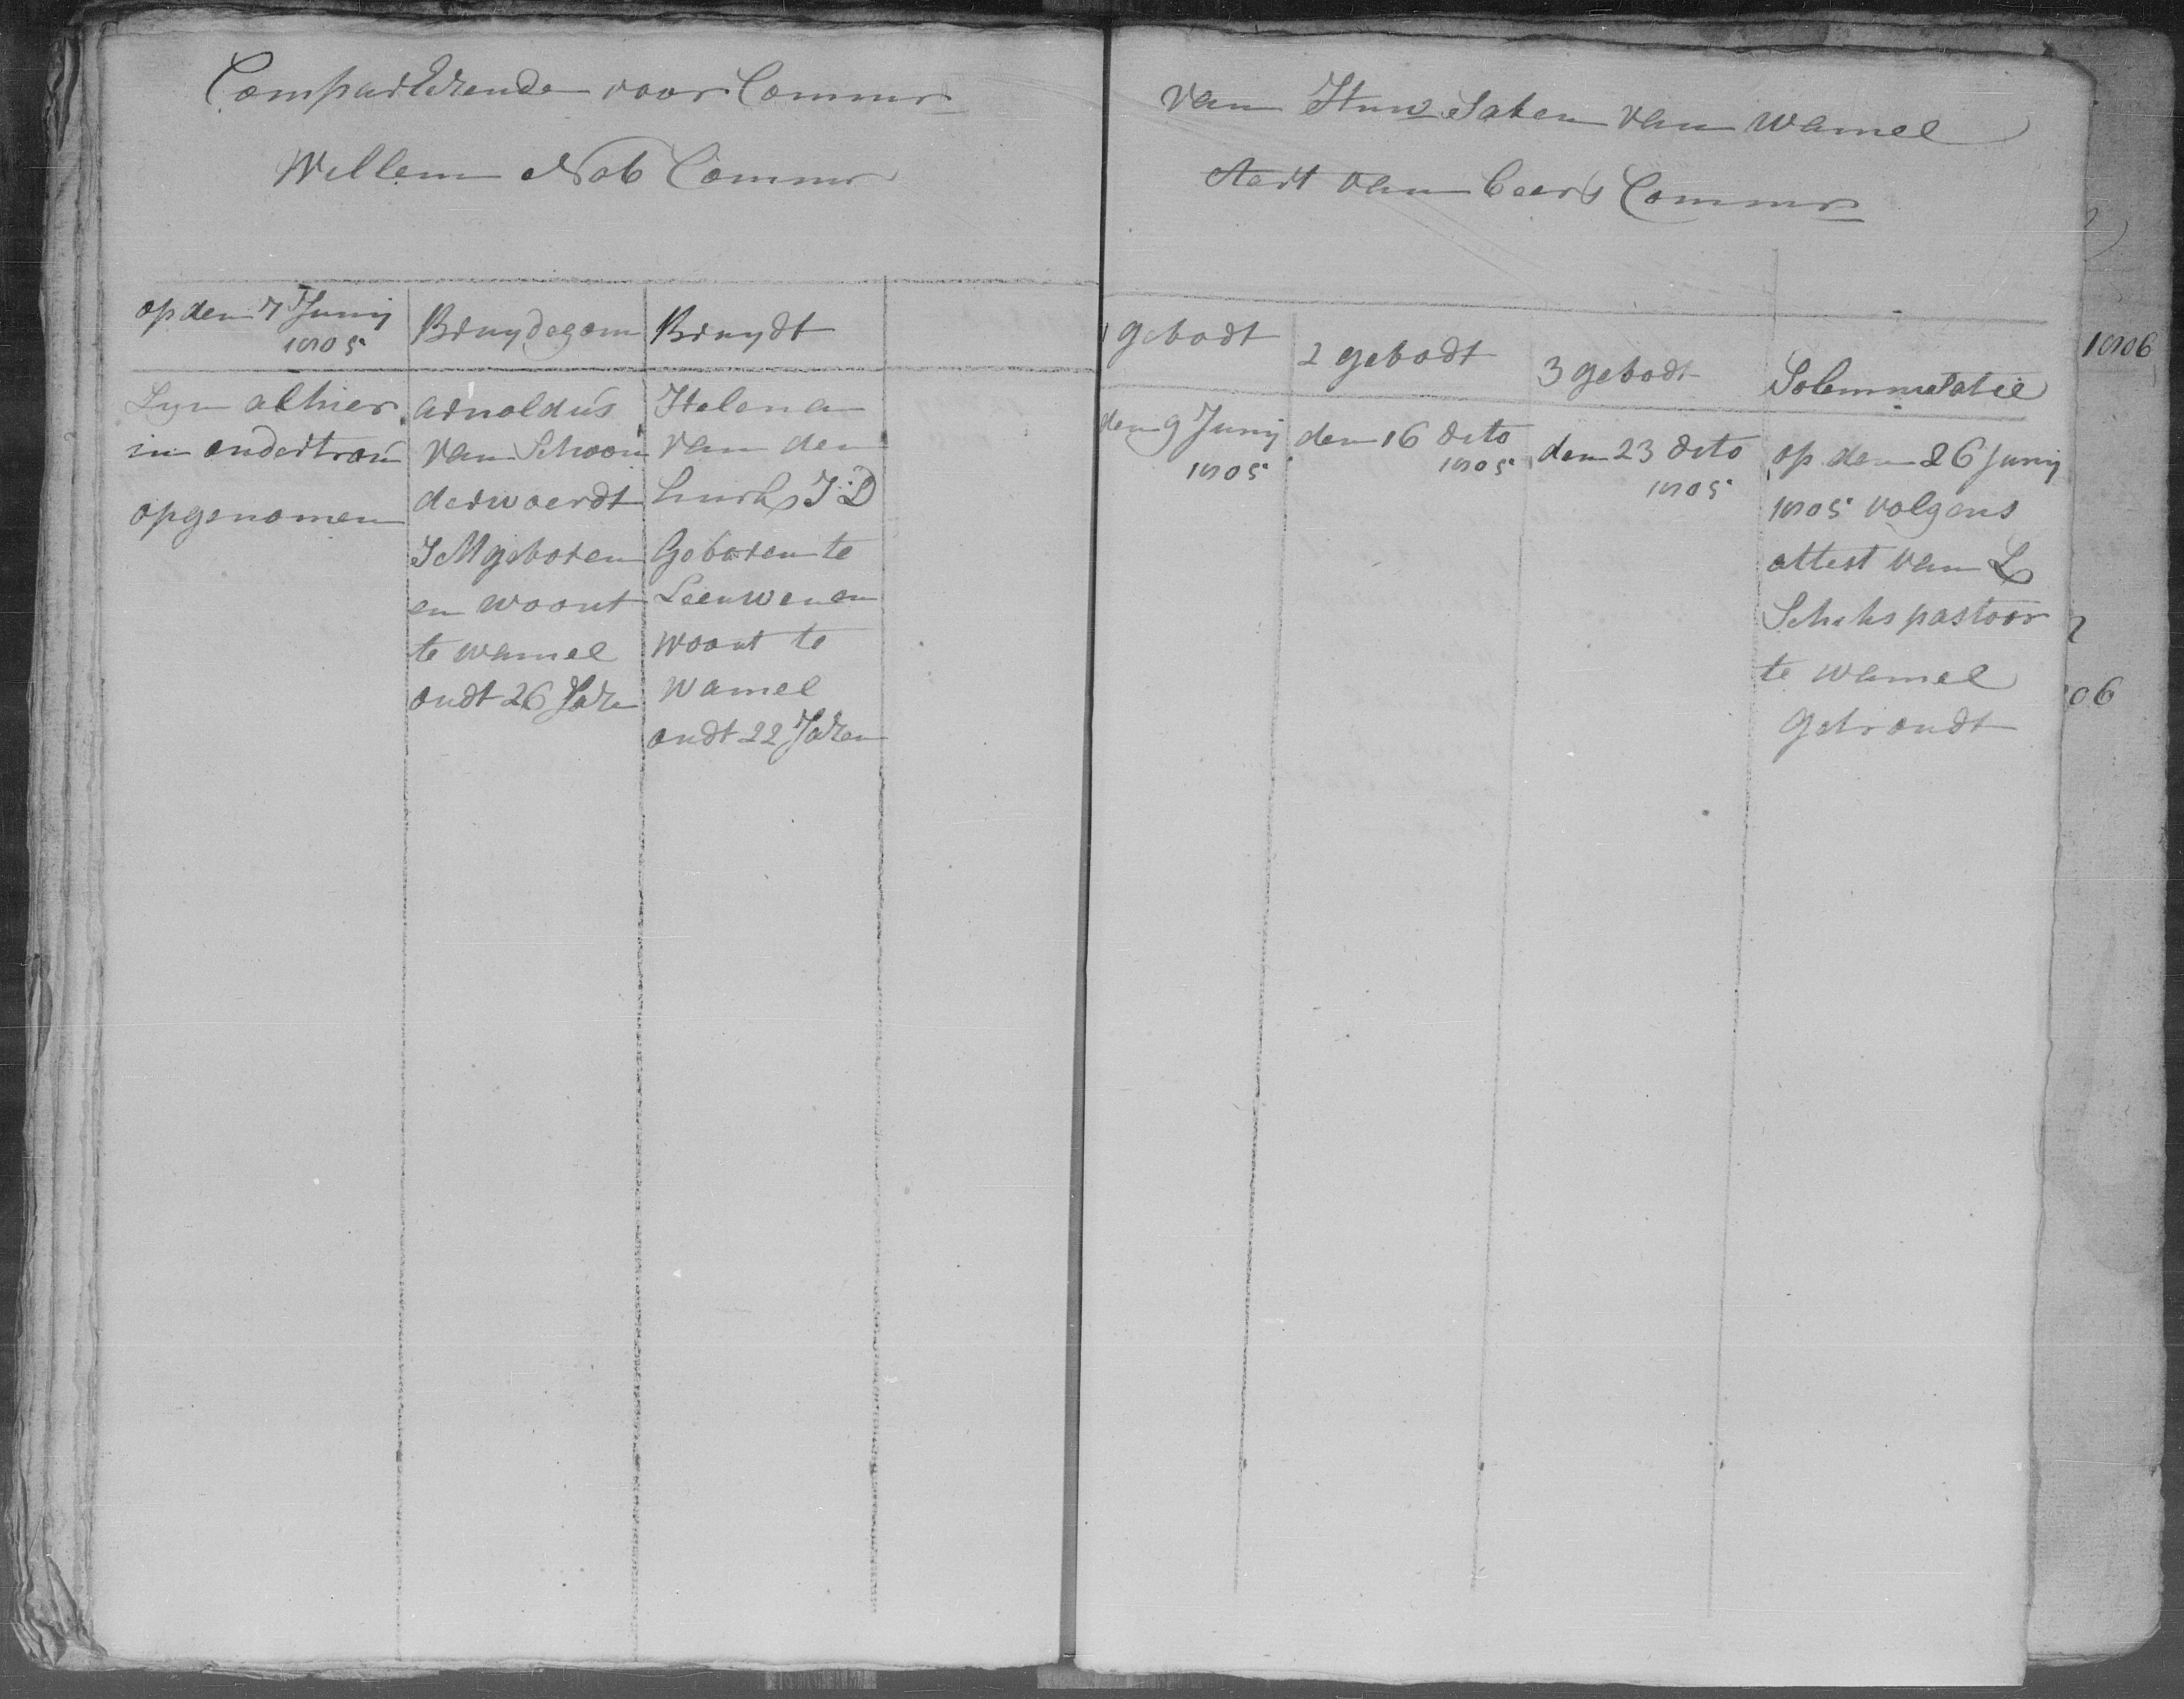 Comparerende voor Commrs
Willem Nob Commr
op den 7 Junij
1805
Bruydegom
Bruydt
Syn alhier
in ondertrou
opgenomen
Arnoldus
van Schoon
derwoerdt
J M geboren
en woont
te wamel
oudt 26 Jare
Helena
van den
hurk J D
Geboren te
Leeuwen en
woont te
Wamel
oudt 22 Jaren
van Huw Saken van Wamel
Aert van beers Commrs
1 gebodt
2 gebodt
3 gebodt
Solemnisatie
den 9 Junij
1805
den 16 dito
1805
den 23 dito
1805
op den 26 Junij
1805 volgens
attest van L
Schiks pastoor
te wamel
getroudt
1806
06